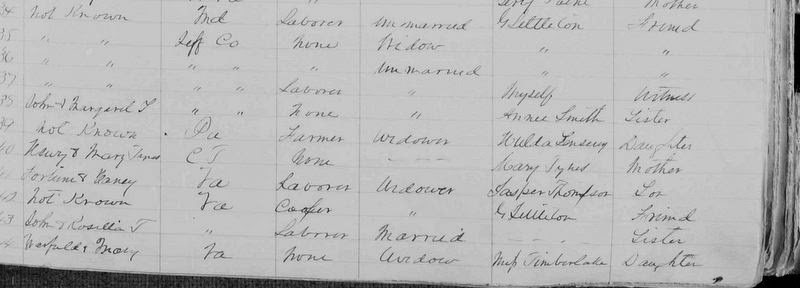 Mother
34 Not Known Md Laborer unmarried G Settleton Friend
35 " " Jeff Co None Widow " "
36 " " " " " unmarried " "
37 " " " " Laborer " Myself Witness
38 John & Margaret T " " None " Annie Smith Sister
39 Not Known Pa Farmer Widower Hulda Daughter
40 Henry & Mary None - - - Mary Mother
41 & Va Laborer Widower Jasper Thompson Son
42 Not Known Va Cooper " G Settleton Friend
43 John & Rosella T " Laborer Married - " - Sister
44 & Mary Va None Widow Timberlake Daughter